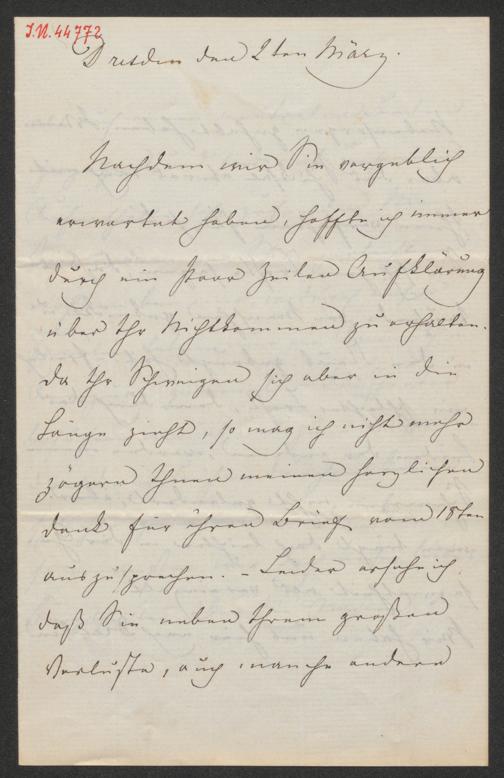 J.N. 44772
Dresden den 2ten März.
Nachdem wir Sie vergeblich
erwartet haben, hoffte ich immer
durch ein paar Zeilen Aufklärung
über Ihr Nichtkommen zu erhalten.
Da Ihr Schweigen sich aber in die
Länge zieht, so mag ich nicht mehr
zögern Ihnen meinen herzlichen
Dank für Ihren Brief vom 18ten
auszusprechen. - Leider ersah ich
daß Sie neben Ihrem großen
Verluste, auch manche andern